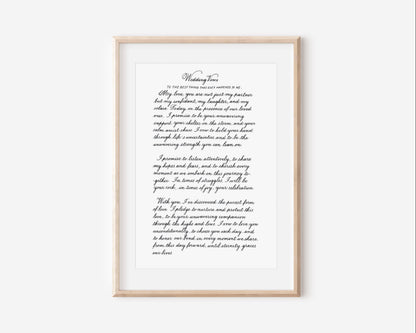 Wedding Vows
TO THE BEST THING THAT EVER HAPPENED TO ME
My love, you are not just my partner
but my confidant, my laughter, and my
solace. Today, in the presence of our loved
ones, I promise to be your unwavering
support, your shelter in the storm, and your
calm amidst chaos. I vow to hold your hand
through life's uncertainties and to be the
unwavering strength you can lean on.
I promise to listen attentively, to share
my hopes and fears, and to cherish every
moment as we embark on this journey to-
gether. In times of struggles, I will be
your rock, in times of joy, your celebration.
With you, I've discovered the purest form
of love. I pledge to nurture and protect this
love, to be your unwavering companion
through the highs and lows. I vow to love you
unconditionally, to choose you each day, and
to honor our bond in every moment we share,
from this day forward, until eternity graces
our lives.